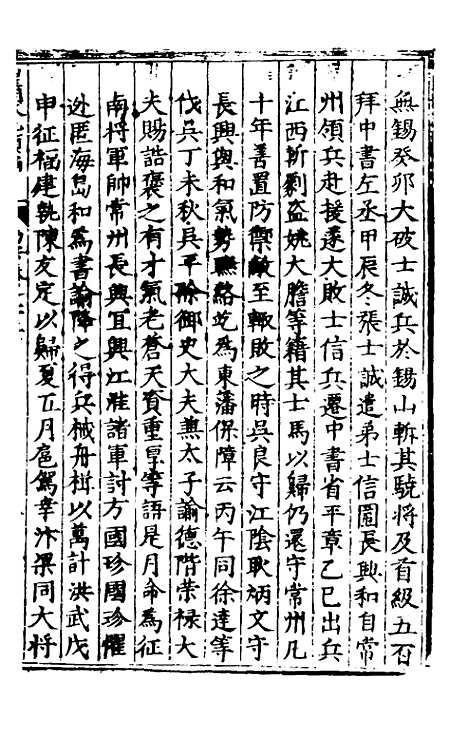 無錫癸卯大破士誠兵於錫山斬其驍將及首級五百
拜中書左丞甲辰冬張士誠遣弟士信圍長興和自常
州領兵赴援遂大敗士信兵遷中書省平章乙巳出兵
江西斬劇盜姚大膽等籍其士馬以歸仍還守常州凡
十年善置防禦敵至輙敗之時吳良守江陰耿炳文守
長興與和氣勢聯絡屹為東藩保障云丙午同徐達等
伐吳丁未秋吳平除御史大夫兼太子諭德階荣祿大
夫賜誥褒之有才氣老蒼天資重厚等語是月命為征
南将軍帥常州長興宜興江淮諸軍討方國珍國珍懼
逊匿海島和為書諭降之得兵械舟楫以萬計洪武戊
申征福建執陳友定以歸夏五月扈駕幸汴梁同大将